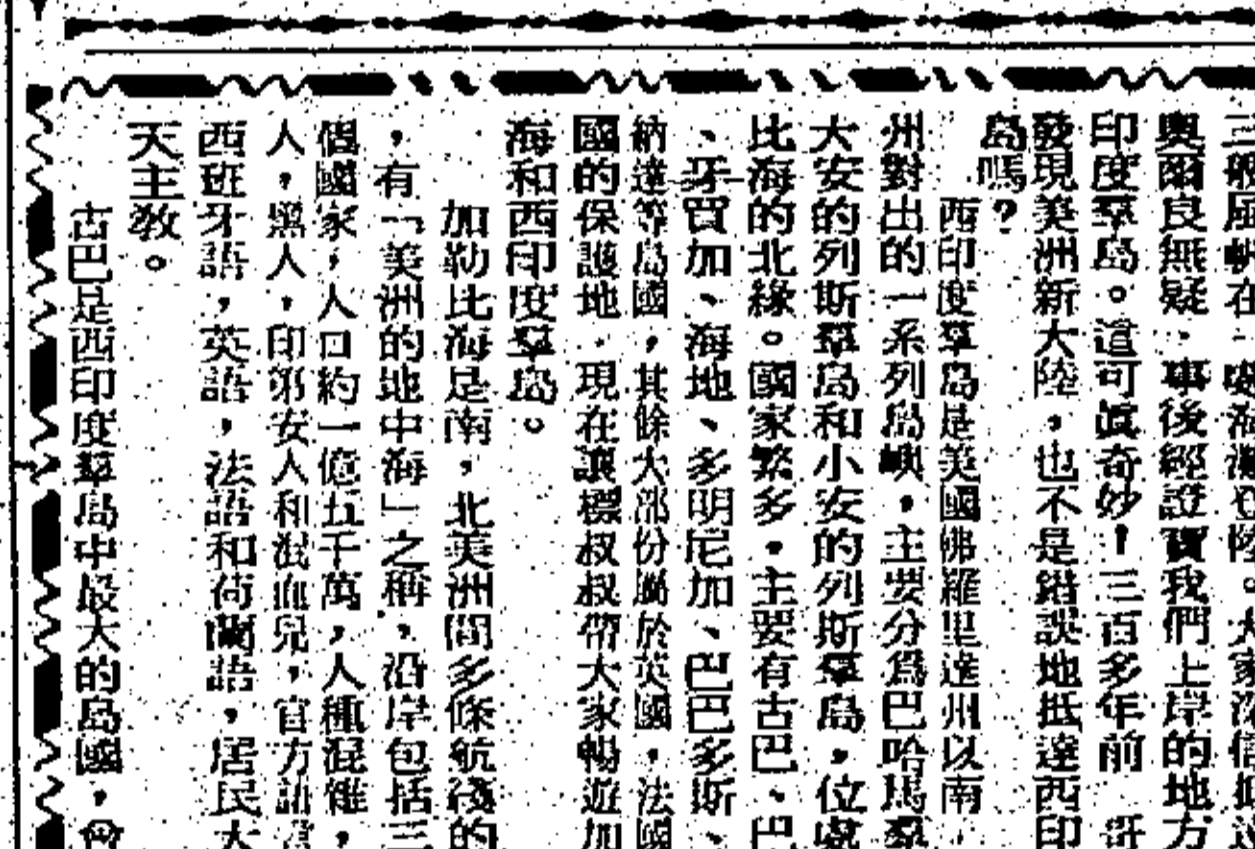 奧爾良無疑．事後經證實我們上岸的地方
印度羣島。這可眞奇妙！三百多年前
發現美洲新大陸，也不是錯誤地抵達西印
島嗎？
西印度羣島是美國佛羅里達州以南．
州對出的一系列島嶼，主要分爲巴哈馬羣
大安的列斯羣島和小安的列斯羣島，位處
比海的北緣。國家繁多，主要有古巴、巴
、牙買加、海地、多明尼加、巴巴多斯、
納達等島國，其餘大部份屬於英國，法國
國的保護地．現在讓標叔叔帶大家暢遊加
海和西印度羣島。
加勒比海是南，北美洲間多條航綫的
，有「美洲的地中海」之稱，沿岸包括三
個國家，人口約一億五千萬，人種混雜，
人，黑人，印第安人和混血兒，官方語
西班牙語，英語，法語和荷蘭語，居民大
天主教。
古巴是西印度羣島中最大的島國，會